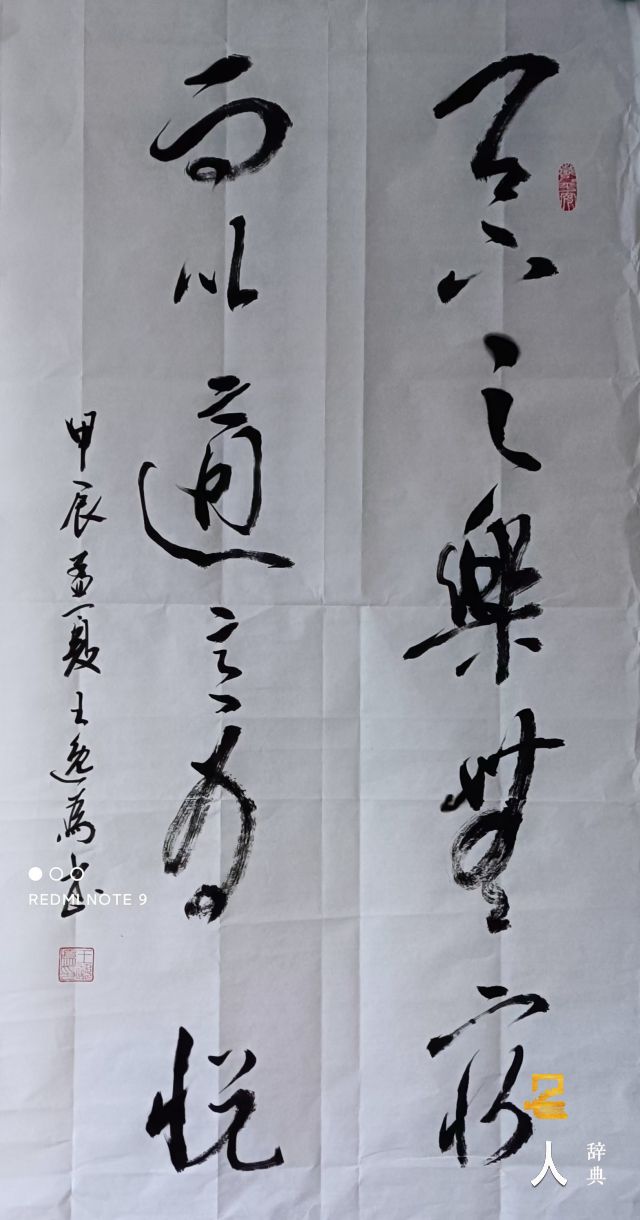 天下之樂無窮
而以適意為悅
甲辰孟夏王逸為書
REDMI NOTE 9
名人
辞典